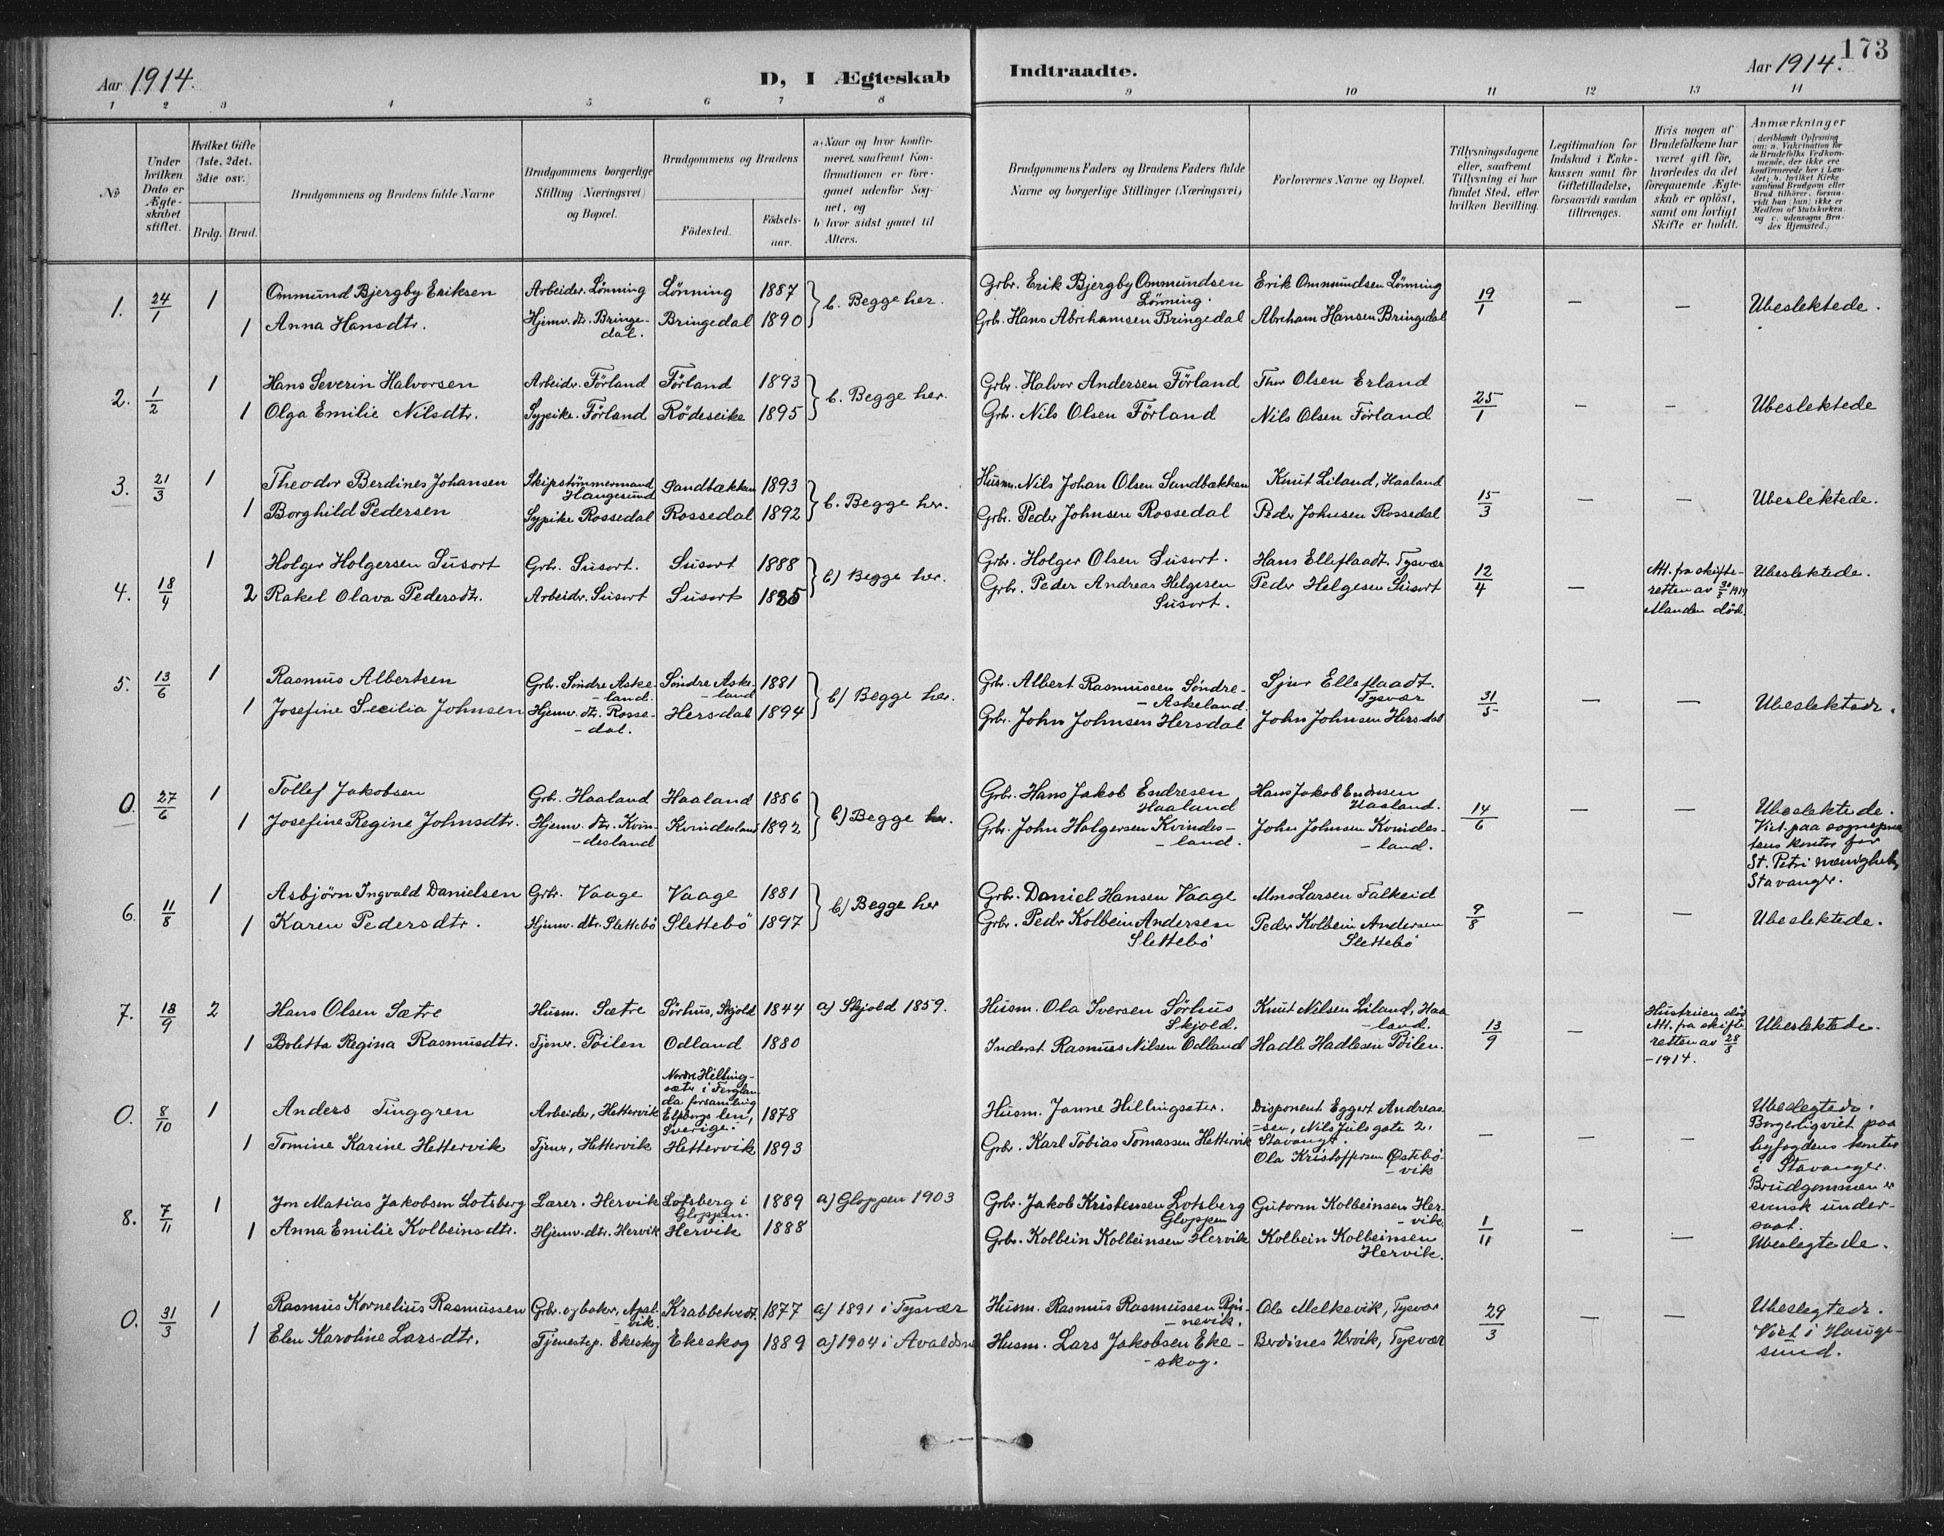 173
Aar 1914.
D, I Ægteskab Indtraadte.
Aar 1914.
1 2 3 4 5 6 7 8 9 10 11 12 13 14
No
Under hvilken Dato er Ægteskabet stiftet.
Hvilket Gifte (1ste, 2det, 3die osv.)
Brdg. Brud.
Brudgommens og Brudens fulde Navne
Brudgommens borgerlige Stilling (Næringsvei) og Bopæl.
Brudgommens og Brudens
Fødested.
Fødsels-aar.
a) Naar og hvor konfirmeret, saafremt Konfirmationen er foregaaet udenfor Sognet, og
b) hvor sidst gaaet til Alters.
Brudgommens Faders og Brudens Faders fulde Navne og borgerlige Stillinger (Næringsvei)
Forlovernes Navne og Bopæl.
Tillysningsdagene eller, saafremt Tillysning ei har fundet Sted, efter hvilken Bevilling.
Legitimation for Indskud i Enkekassen samt for Giftetilladelse, forsaavidt saadan tiltrænges.
Hvis nogen af Brudefolkene har været gift før, hvorledes da det foregaaende Ægteskab er opløst, samt om lovligt Skifte er holdt.
Anmærkninger
1. 24/1 1 Ommund Bjergby Eriksen Arbeider. Lønning Lønning 1887 b. Begge her. Grbr. Erik Bjergby Ommundsen Lønning. Erik Ommundsen Lønning 19/1 — — Ubeslektede.
1 Anna Hansdtr. Hjemv. dtr. Bringedal. Bringedal 1890 Grb. Hans Abrahamsen Bringedal Abraham Hansen Bringedal
2. 1/2 1 Hans Severin Halvorsen Arbeidr. Førland Førland 1893 b. Begge her. Grbr. Halvor Andersen Førland Thor Olsen Erland 25/1 — — Ubeslektede
1 Olga Emilie Nilsdtr. Sypike. Førland Rødeseike 1895 Grb. Nils Olsen Førland Nils Olsen Førland
3. 21/3 1 Theodor Berdines Johansen Skipstømmermand Haugesund Sandbækken 1893 b. Begge her. Husm. Nils Johan Olsen Sandbækken Knut Liland, Haaland 15/3 — — Ubeslektede.
1 Borghild Pedersen Sypike Rossedal Rossedal 1892 Grbr. Peder Johnsen Rossedal Peder Johnsen Rossedal
4. 18/4 1 Holger Holgersen Susort Grb. Susort. Susort 1888 b) Begge her. Grbr. Holger Olsen Susort. Hans Elleflaadt, Tysvær 12/4 — Att. fra skifteretten av 1914 Manden død. Ubeslektede.
2 Rakel Olava Pedersdtr. Arbeidr. Susort Susort Grbr. Peder Andreas Helgesen Susort. Peder Helgesen Susort
5. 13/6 1 Rasmus Albertsen Grb. Søndre Aske-land. Søndre Aske-land 1881 b) Begge her. Grb. Albert Rasmussen Søndre-Askeland. Sjur Elleflaadt. Tysvær 31/5 — — Ubeslektede.
1 Josefine Secilia Johnsen Hjemv. dtr. Rosse-dal. Hersdal 1894 Grb. John Johnsen Hersdal John Johnsen Hersdal
0. 27/6 1 Tollef Jakobsen Grb. Haaland Haaland 1886 b) Begge her. Grb. Hans Jakob Endresen Haaland Hans Jakob Endresen Haaland. 14/6 — — Ubeslektede. Viet paa sogneprestens kontor for St. Petri menighet, Stavanger.
1 Josefine Regine Johnsdtr. Hjemv. dtr. Kvin-desland Kvindesland 1892 Grb. John Holgersen Kvindes-land. John Johnsen Kvindes-land.
6. 11/8 1 Asbjørn Ingvald Danielsen Grbr. Vaage Vaage 1881 b) Begge her Grb. Daniel Hansen Vaage Larsen Falkeid 9/8 — — Ubeslektede.
1 Karen Pedersdtr. Hjemv. dtr. Slettebø Slettebø 1897 Grbr. Pedr Kolbein Andersen Slettebø Peder Kolbein Andersen Slettebø
7. 18/9 2 Hans Olsen Sætre Husm. Sætre Sørhus, Skjold 1844 a) Skjold 1859. Husm. Ola Iversen Sørhus Skjold. Knut Nilsen Liland, Haa-land. 13/9 — Hustruen død Att. fra skifteretten av 28/8 - 1914. Ubeslektede.
1 Boletta Regina Rasmusdtr. Tjener. Pøilen Odland 1880 Inderst Rasmus Nilsen Odland Hadle Hadlesen Pøilen.
0. 8/10 1 Anders Tinggren Arbeider, Hettervik Nordre Hilling-sætr i Fergelanda forsamling Elfsborgs len, Sverige. 1878 Husm. Janne Hillingsæter. Disponent Eggert Andreas-sen, Nils Juls gate 2, Stavanger. — — — Ubeslegtede. Borgerlig viet paa byfogdens kontor i Stavanger. Brudgommen er svensk under-saat.
1 Tomine Karine Hettervik Tjener, Hettervik Hettervik 1893 Grb. Karl Tobias Tomassen Hettervik Ola Kristoffersen Østebø-vik
8. 7/11 1 Jon Matias Jakobsen Lotsberg Lærer. Hervik Lotsberg i Gloppen. 1889 a) Gloppen 1903 Grbr. Jakob Kristensen Lotsberg Gloppen Gutorm Kolbeinsen Her-vik. 1/11 — — Ubeslegtede.
1 Anna Emilie Kolbeinsdtr. Hjemv. dtr. Hervik Hervik 1888 Grb. Kolbein Kolbeinsen Hervik Kolbein Kolbeinsen Hervik.
0. 31/3 1 Rasmus Kornelius Rasmussen Grbr. og baker, Apal-vik. Krabbetvedt. 1877 a) 1891 i Tysvær Husm. Rasmus Rasmussen Røi-nevik. Ole Melkevik, Tysvær 29/3 — — Ubeslegtede. Viet i Hauge-sund.
1 Elen Karoline Larsdtr. Tjenestep. Ekeskog Ekeskog 1889 a) 1904 i Avaldsnes Husm. Lars Jakobsen Eke-skog. Berdines Hervik, Tysvær